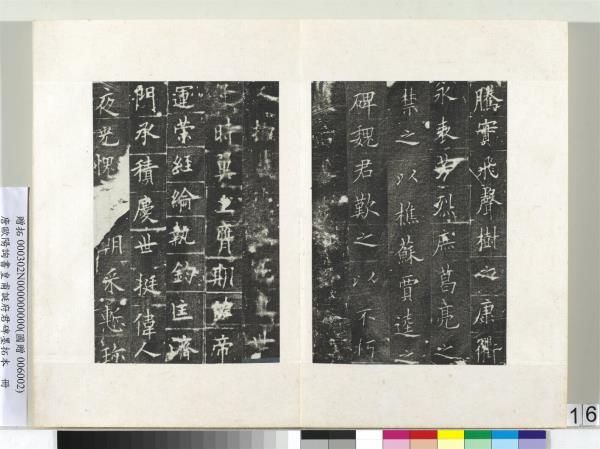 騰實飛聲樹之康衢
永表芳烈庶葛亮之
禁之以樵蘇賈逵之
碑魏君歎之以不朽
人物世
時翼主膺期佐帝
運策經綸執鈞匡濟
門承積慶世挺偉人
夜光愧朝采慙珍
贈拓 000302N000000000(國贈 006002)
唐歐陽詢書皇甫誕府君碑墨拓本 冊
16